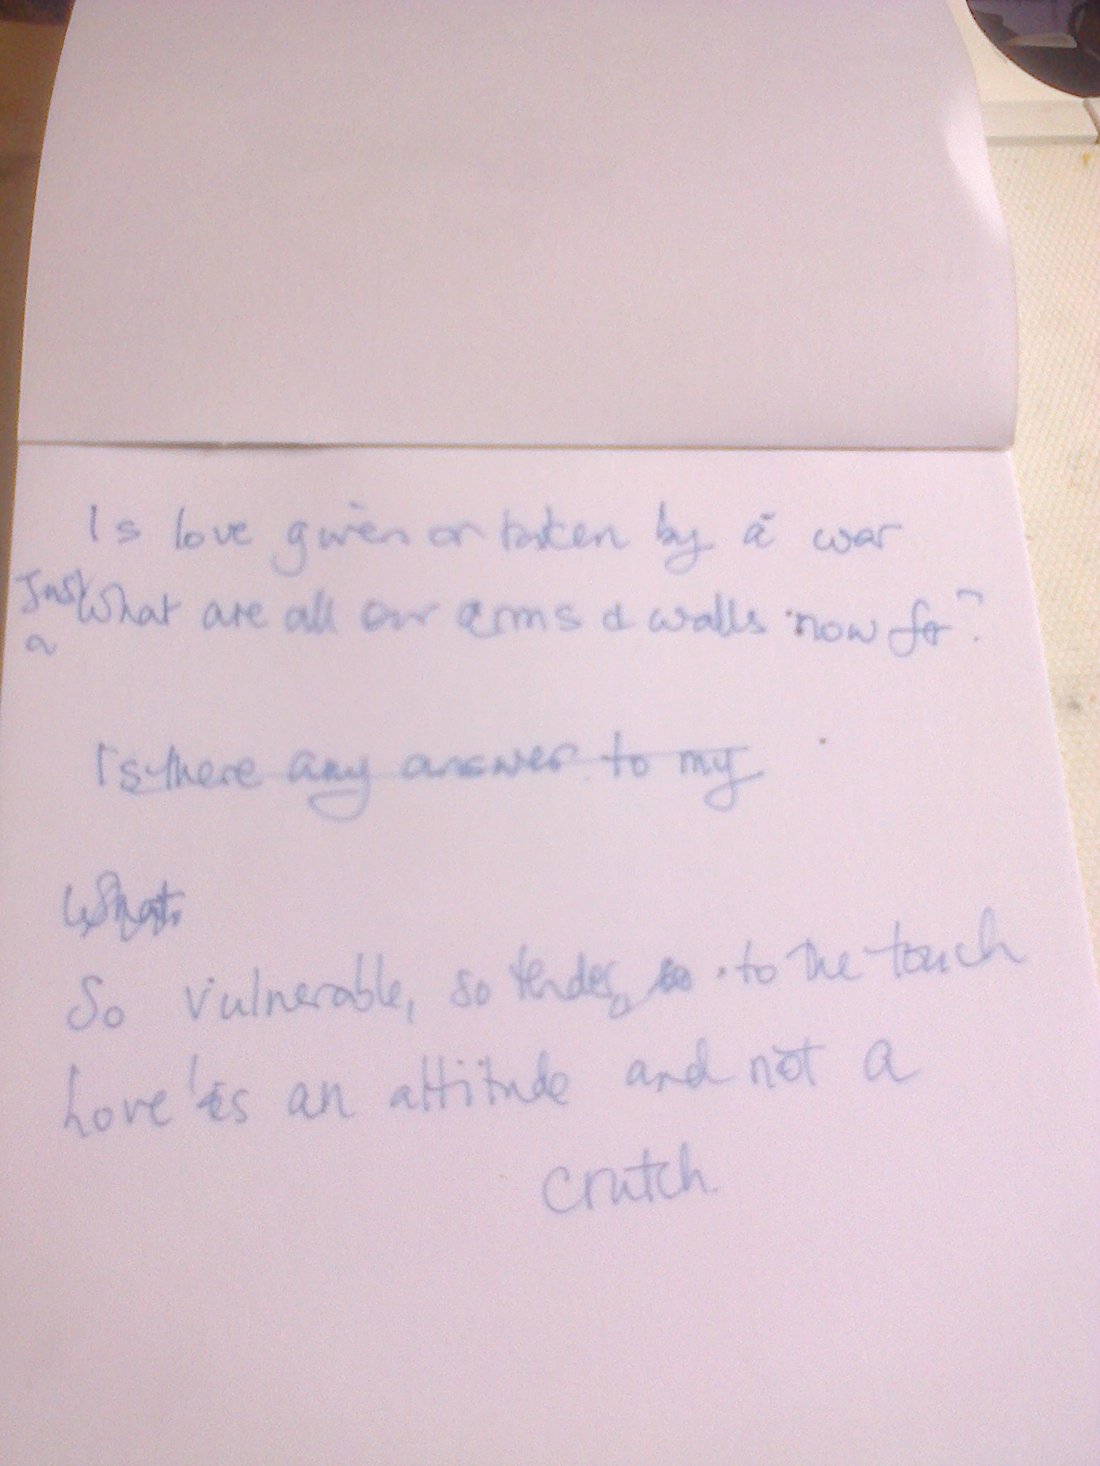 Is love given or taken by a war
Just What are all our arms & walls now for?
a
Is there any answer to my
What
So vulnerable, so tender, so to the touch
Love is an attitude and not a
crutch.